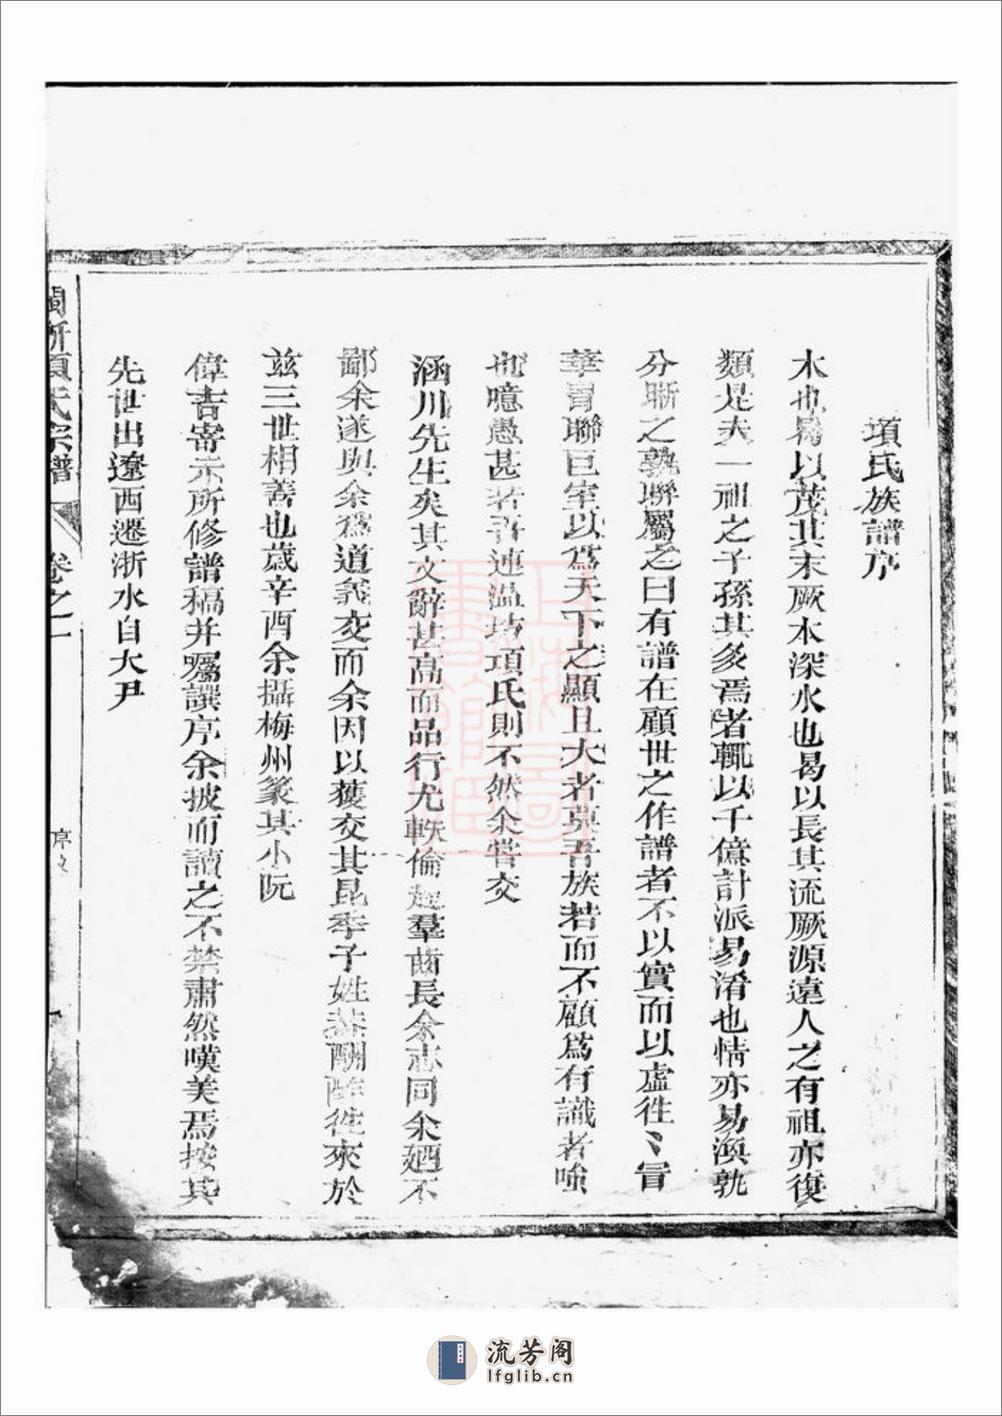 項氏族譜序
木也曷以茂其末厥本深水也曷以長其流厥源遠人之有祖亦復
類是夫一祖之子孫其多焉者輒以千億計派易淆也情亦易渙孰
分晰之孰聯屬之曰有譜在顧世之作譜者不以實而以虛徃〻冒
華冑聯巨室以為天下之顯且大者莫吾族若而不顧為有識者嗤
也噫愚甚若吾連溫坊項氏則不然余嘗交
涵川先生矣其文辭甚高而品行尤軼倫超羣齒長余志同余廼不
鄙余遂與余為道義交而余因以獲交其昆季子姓恭酬酢徃來於
兹三世相善也歲辛酉余攝梅州篆其小阮
偉吉寄示所修譜稿并囑譔序余披而讀之不禁肅然嘆美焉按其
先世出遼西遷浙水自大尹
閩浙項氏宗譜
卷之一
序文
流芳阁
lfglib.cn